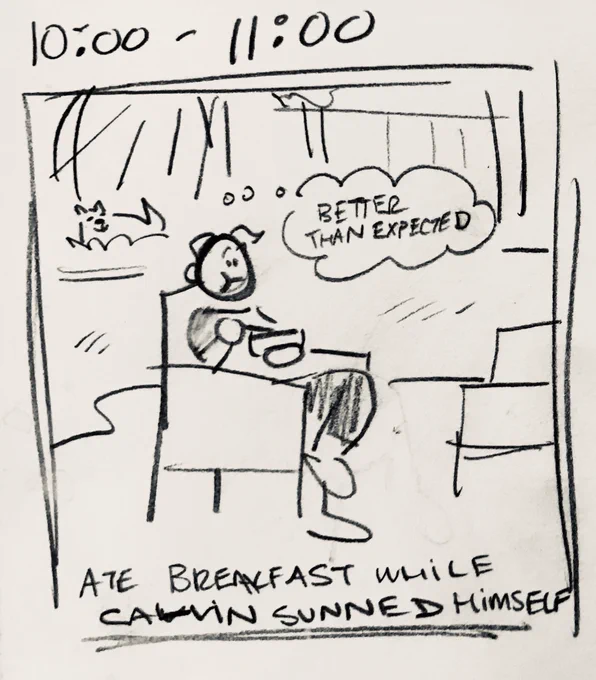 10:00 - 11:00
BETTER
THAN EXPECTED
ATE BREAKFAST WHILE
CALVIN SUNNED HIMSELF